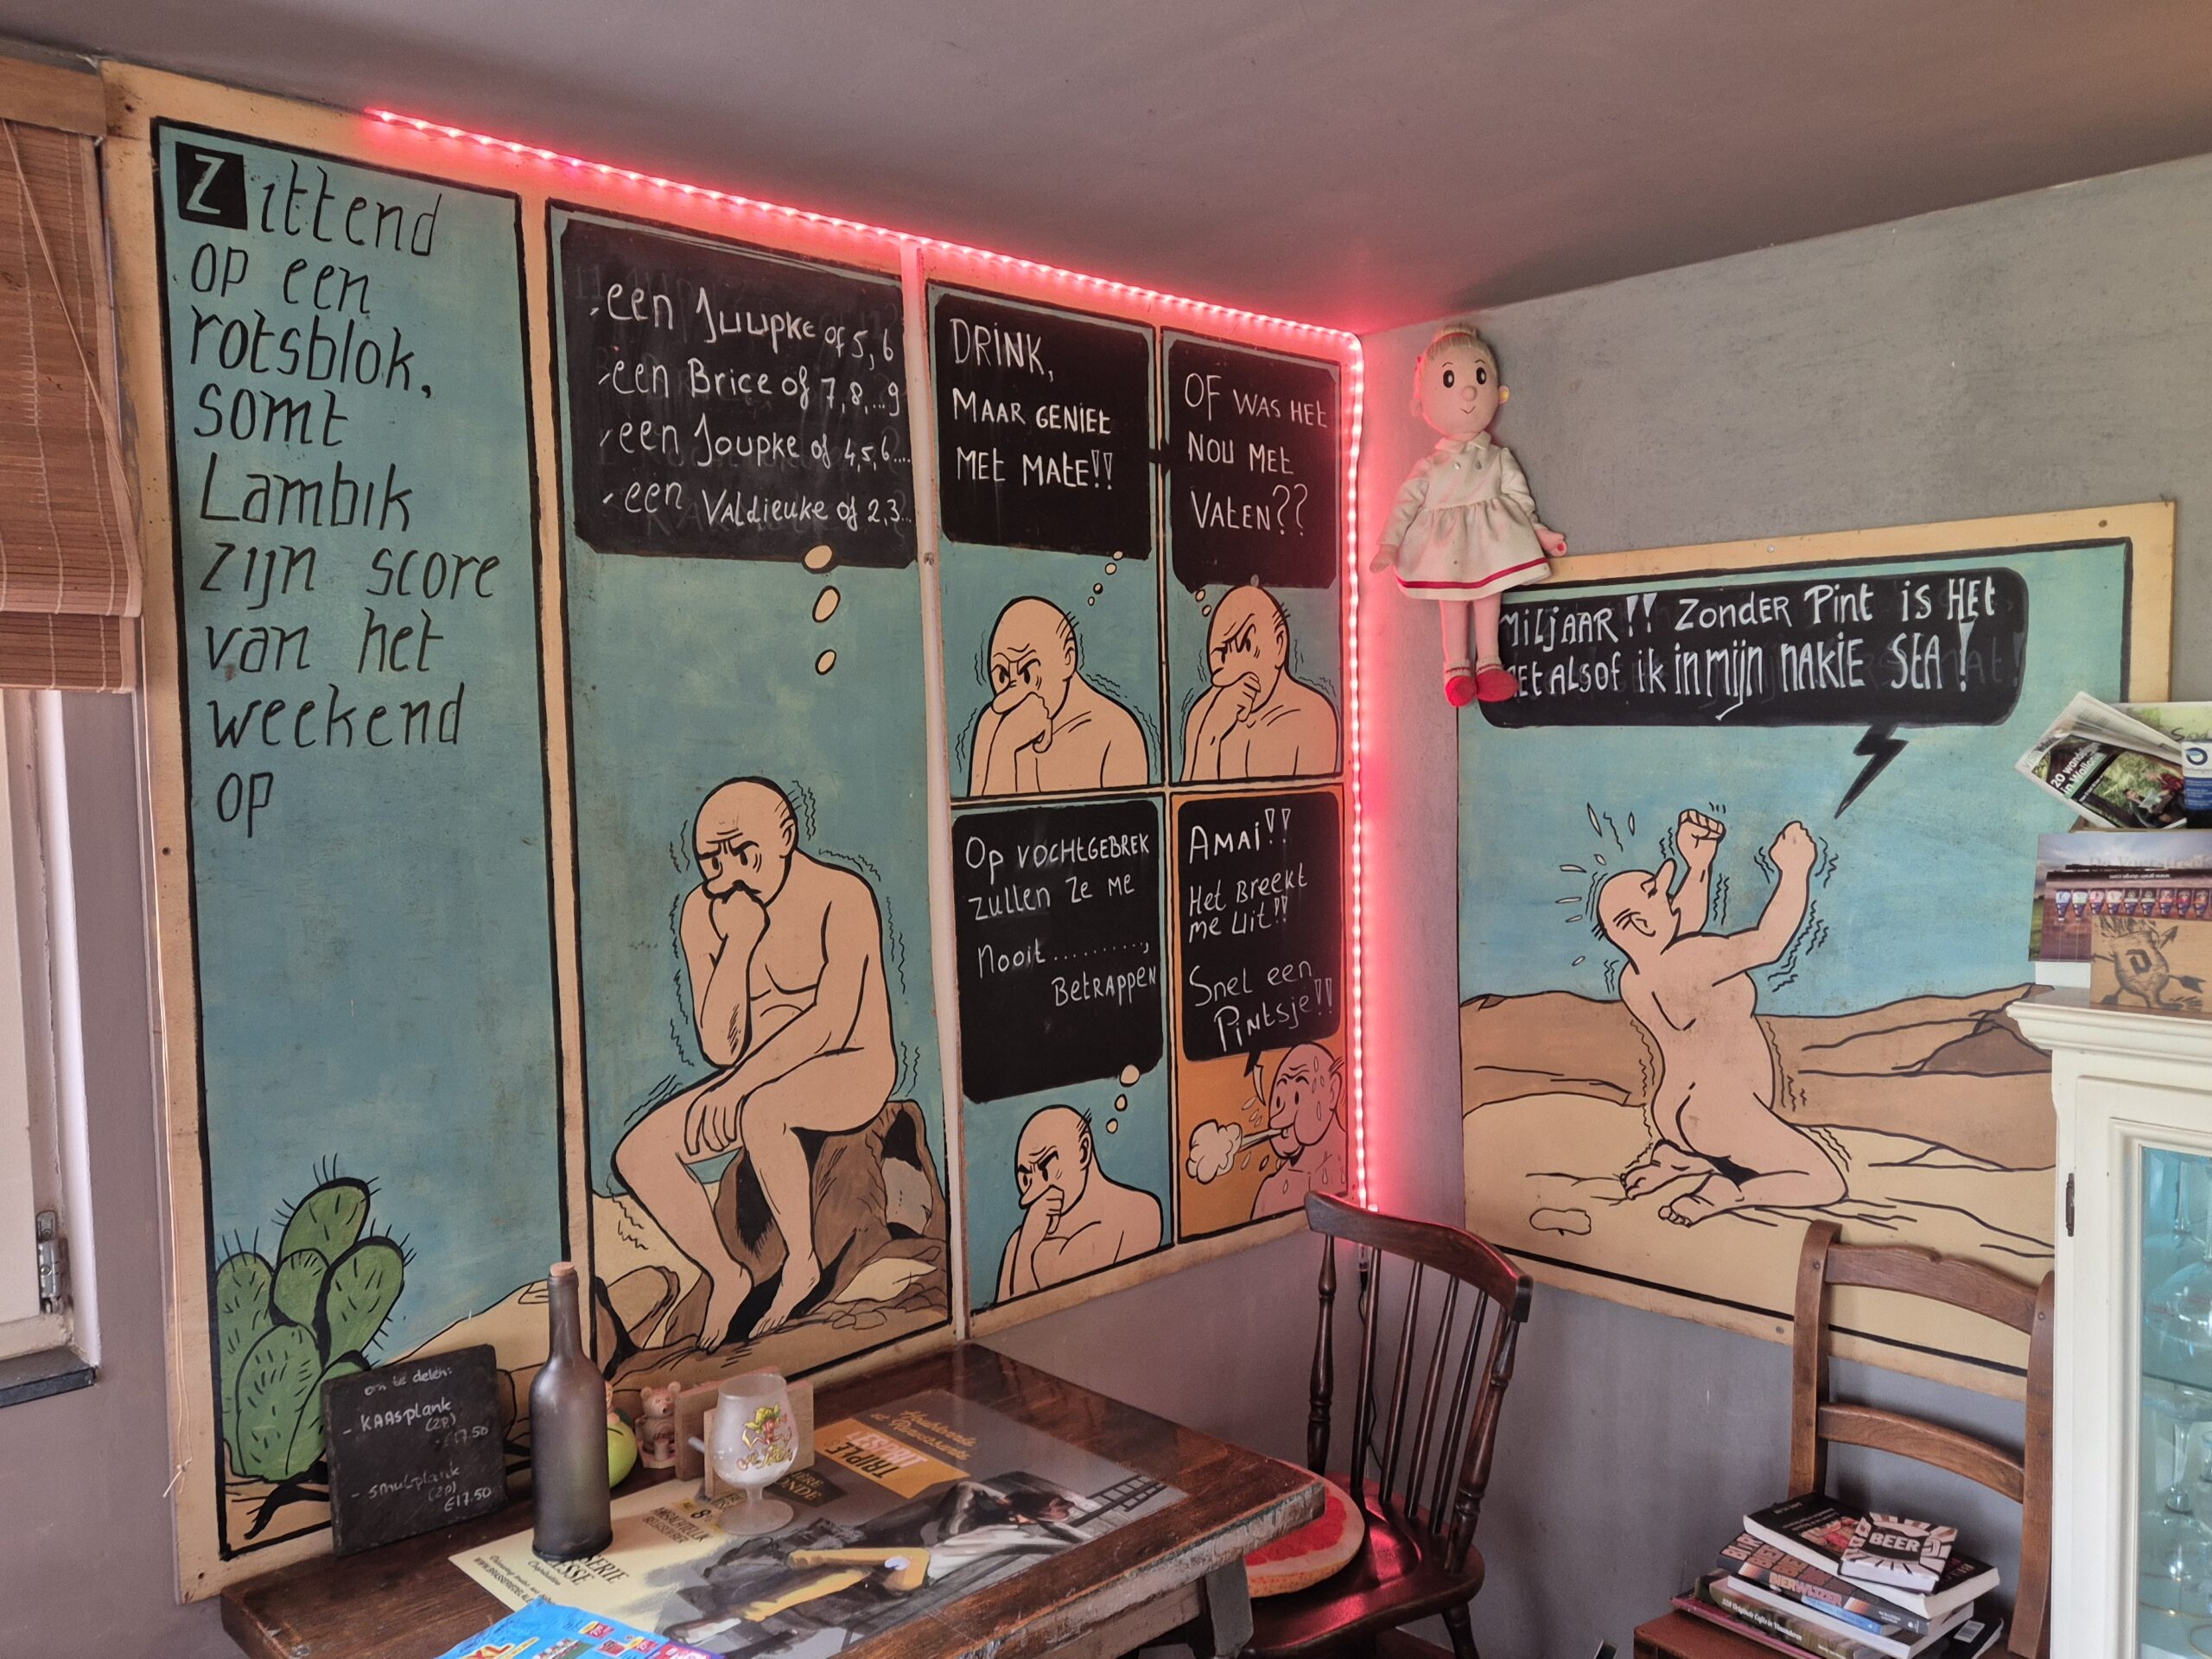 Zittend
op een
rotsblok,
somt
Lambik
zijn score
van het
weekend
op
-een Juupke of 5,6
-een Brice of 7,8,...9
-een Joupke of 4,5,6....
-een Valdieuke of 2,3..
DRINK,
MAAR GENIET
MET MATE!!
OF WAS HET
NOU MET
VATEN??
Op vochtgebrek
zullen ze me
Nooit..........,
Betrappen
AMAI!!
Het Breekt
me uit!!
Snel een
Pintsje!!
MILJAAR!! Zonder Pint is HET
ALSOF ik in mijn nakie STA!
om te delen:
- KAASplank
(2P)
€17.50
- smulplank
(2P)
€17.50
TRIPLE
BEER
20